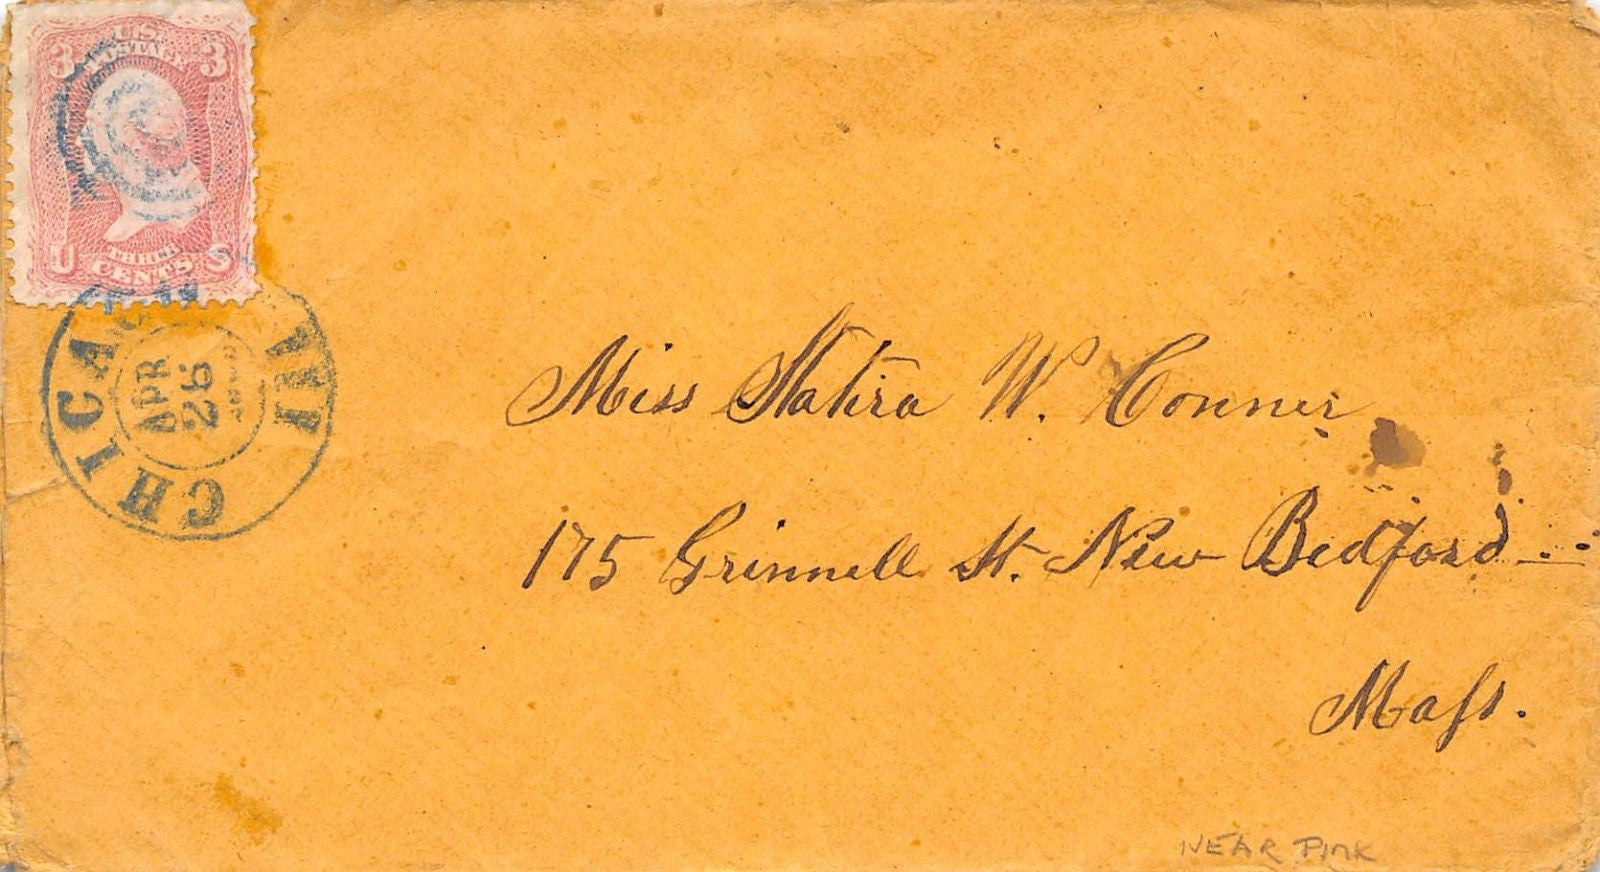 3 U.S. 3
POSTAGE
THREE
U CENTS S
CHICAGO ILL
APR
26
Miss Statira W. Conner
175 Grinnell St. New Bedford
Mass.
NEAR PINK